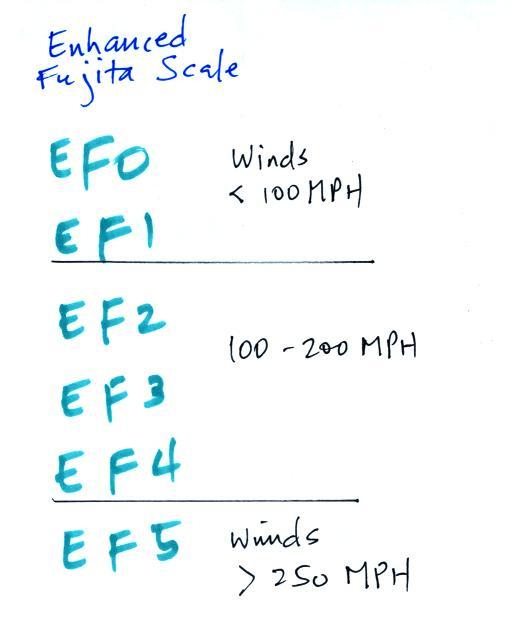 Enhanced
Fujita Scale
EF0
Winds
< 100 MPH
EF1
EF2
100 - 200 MPH
EF3
EF4
EF5
Winds
> 250 MPH